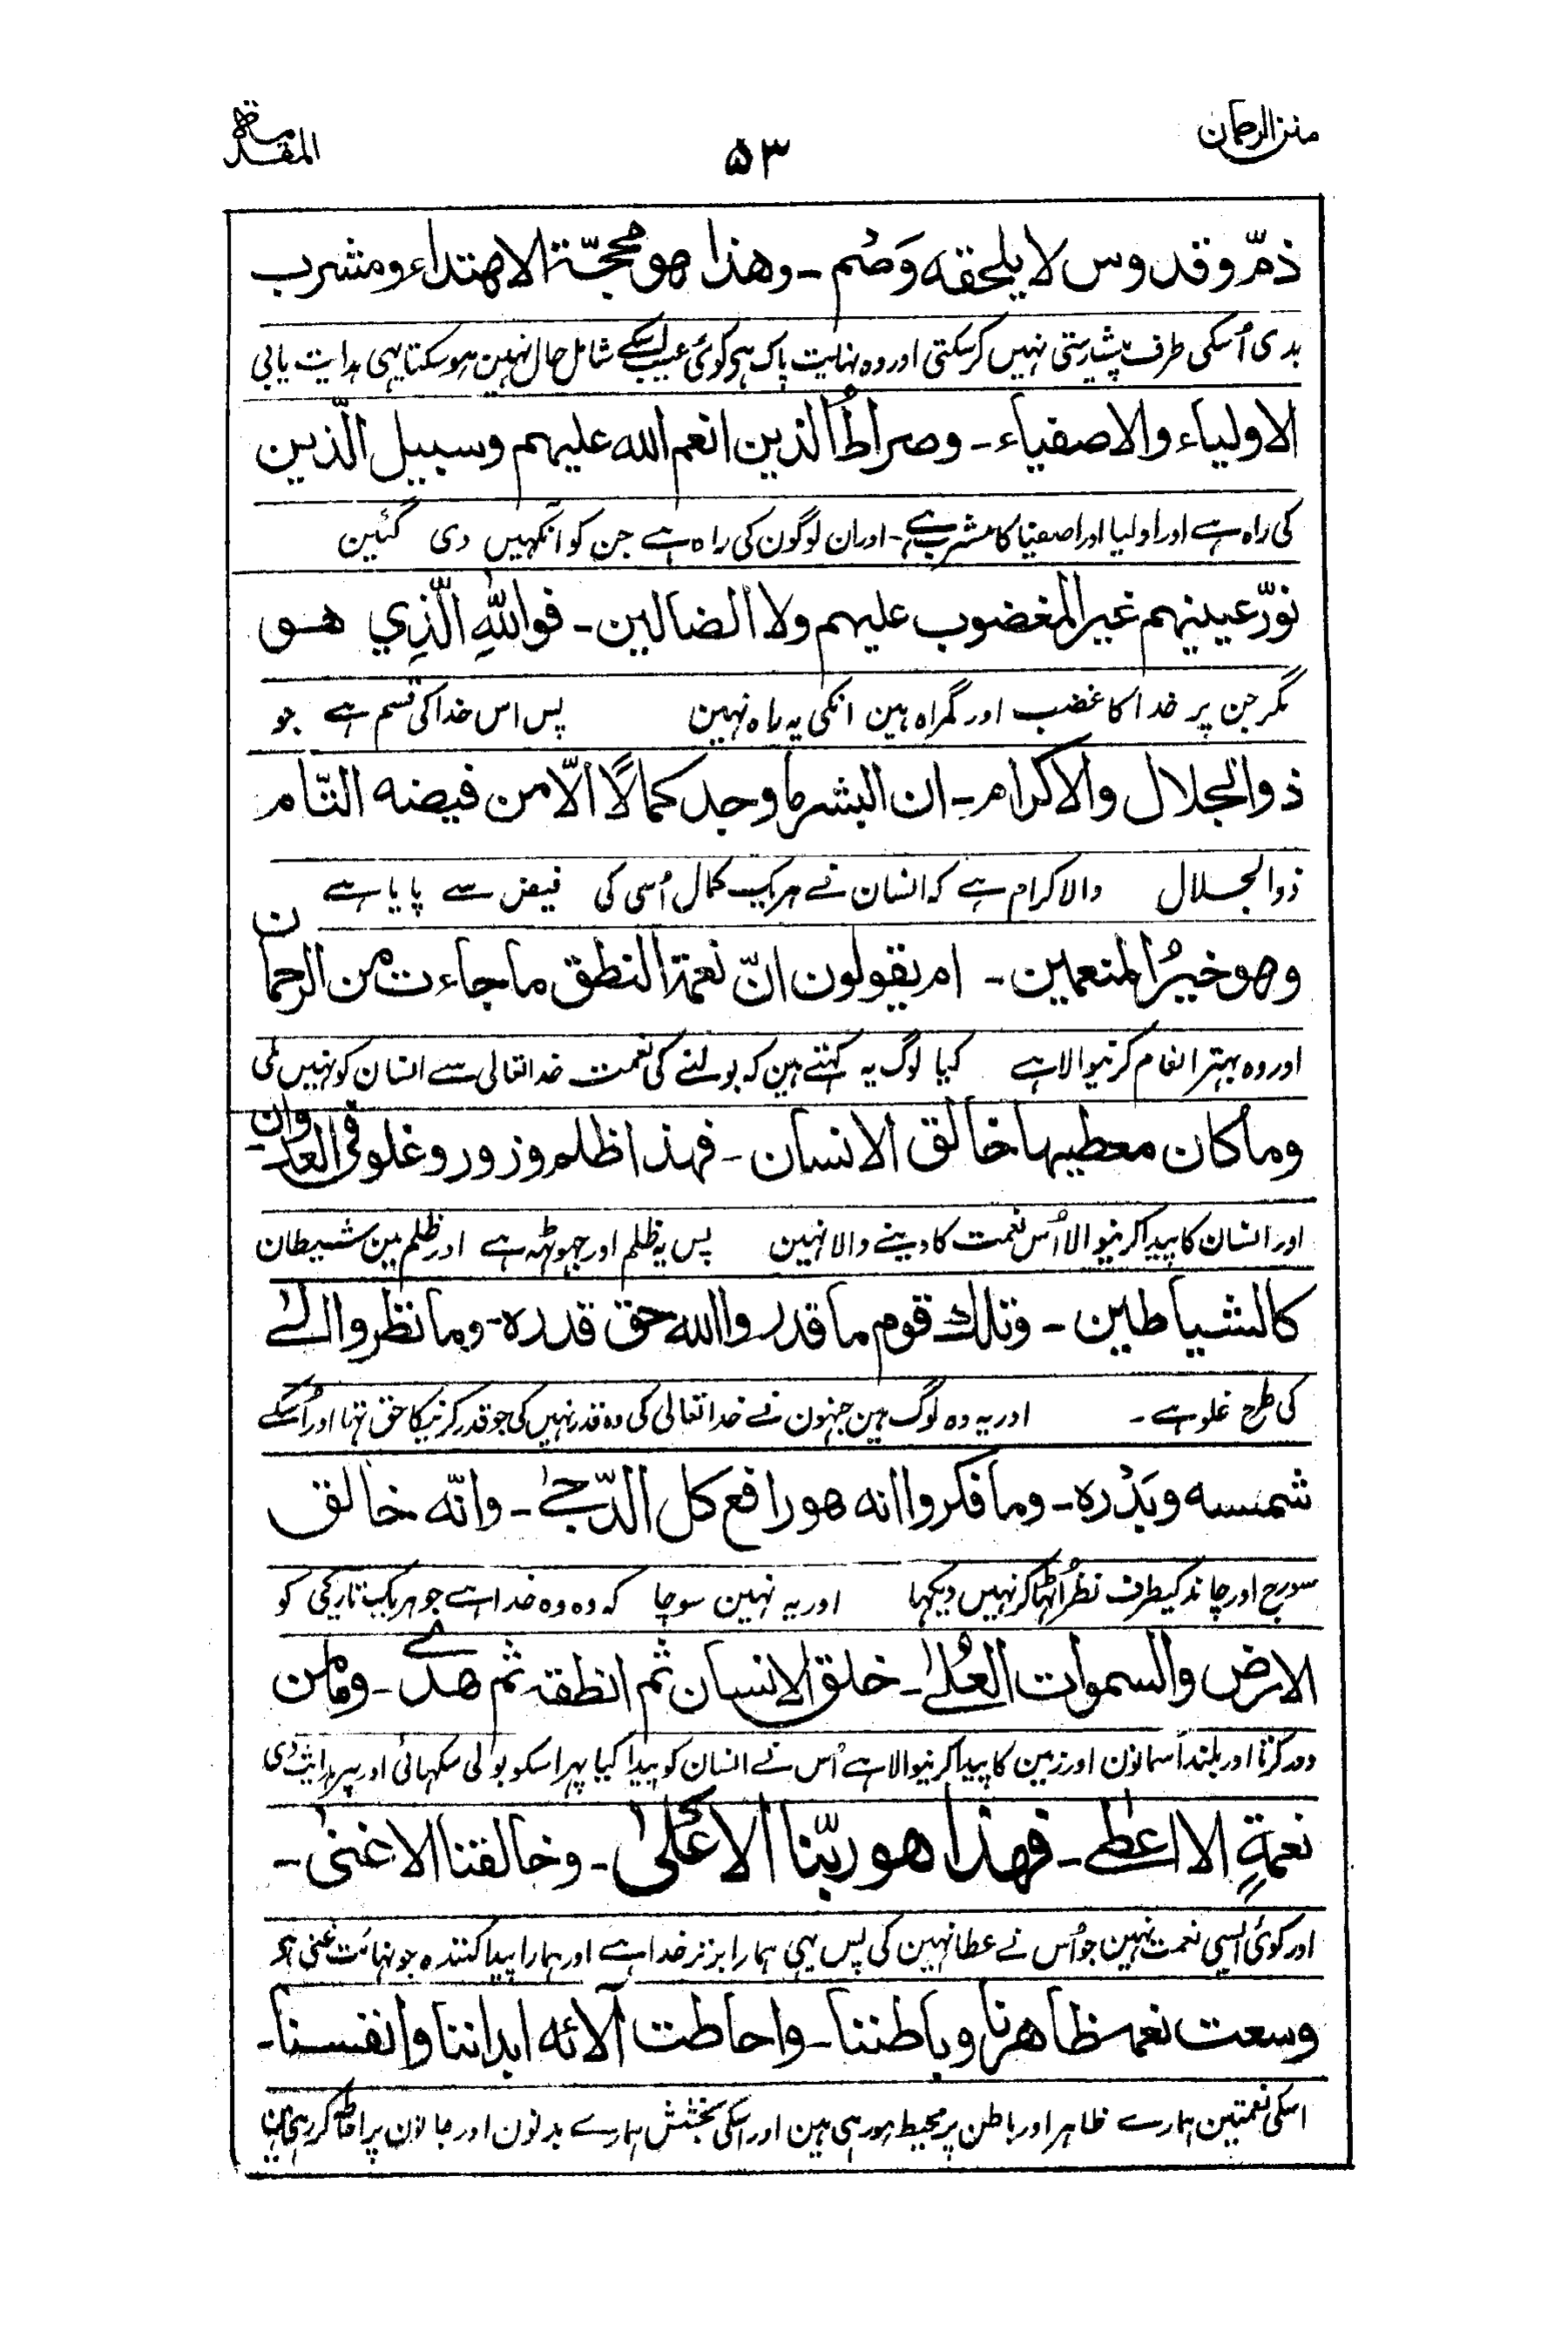 منن الرحمان
۵۳
المقدمة
ذمّ وقدوس لا يلحقه وَصْم ـ وهذا هو محجّة الاهتداء ومشرب
بدی اُسکی طرف پیشدستی نہیں کرسکتی اور وہ نہایت پاک ہے کوئی عیب اسکے شامل حال نہین ہوسکتا یہی ہدایت یابی
الاولياء والاصفياء ـ وصراطُ الذين انعم الله عليهم وسبيل الّذين
کی راہ ہے اور اولیا اور اصفیا کا مشرب ہے ـ اور ان لوگون کی راہ ہے جن کو آنکہیں دی گئین
نوّر عينيهم غير المغضوب عليهم ولا الضالين ـ فواللهِ الّذِي هو
مگر جن پر خدا کا غضب اور گمراہ ہین انکی یہ راہ نہین پس اس خدا کی قسم ہے جو
ذو الجلال والاكرام ـ ان البشر ما وجد كمالًا الّا من فيضه التّام
ذو الجلال والاکرام ہے کہ انسان نے ہریک کمال اُسی کی فیض سے پایا ہے
وهو خيرُ المنعمين ـ ام يقولون انّ نعمة النطق ما جاءت من الرحمان
اور وہ بہتر انعام کرنیوالا ہے کیا لوگ یہ کہتے ہین کہ بولنے کی نعمت خدا تعالی سے انسان کو نہیں ملی
وما كان معطيها خالق الانسان ـ فهذا ظلم وزور وغلو فى العدوان ـ
اور انسان کا پیدا کرنیوالا اُس نعمت کا دینے والا نہین پس یہ ظلم اور جہوٹھ ہے اور ظلم مین شیطان
كالشياطين ـ وتلك قوم ما قدروا الله حق قدره ـ وما نظروا الى
کی طرح غلو ہے ـ اور یہ وہ لوگ ہین جنہون نے خدا تعالی کی وہ قدر نہیں کی جو قدر کرنیکا حق تہا اور اُسکے
شمسه وبَدْره ـ وما فكروا انه هو رافع كل الدّجى ـ وانّه خالق
سورج اور چاند کیطرف نظر اُٹہا کر نہیں دیکہا اور یہ نہین سوچا کہ وہ وہ خدا ہے جو ہریک تاریکی کو
الارض والسموات العُلى ـ خلق الانسان ثم انطقه ثم هدى ـ وما من
دور کرتا اور بلند آسمانون اور زمین کا پیدا کرنیوالا ہے اُس نے انسان کو پیدا کیا پہر اسکو بولی سکہائی اور پہر ہدایت دی
نعمةٍ الا اعطى ـ فهذا هو ربّنا الاعلىٰ ـ وخالقنا الاغنىٰ ـ
اور کوئی ایسی نعمت نہین جو اُس نے عطا نہین کی پس یہی ہمارا برتر خدا ہے اور ہمارا پیدا کنندہ جو نہائت غنی ہے
وسعت نعمه ظاهرنا وباطننا ـ واحاطت آلائه ابداننا وانفسنا ـ
اسکی نعمتین ہمارے ظاہر اور باطن پر محیط ہو رہی ہین اور اسکی بخشش ہمارے بدنون اور جانون پر احاطہ کر رہی ہین